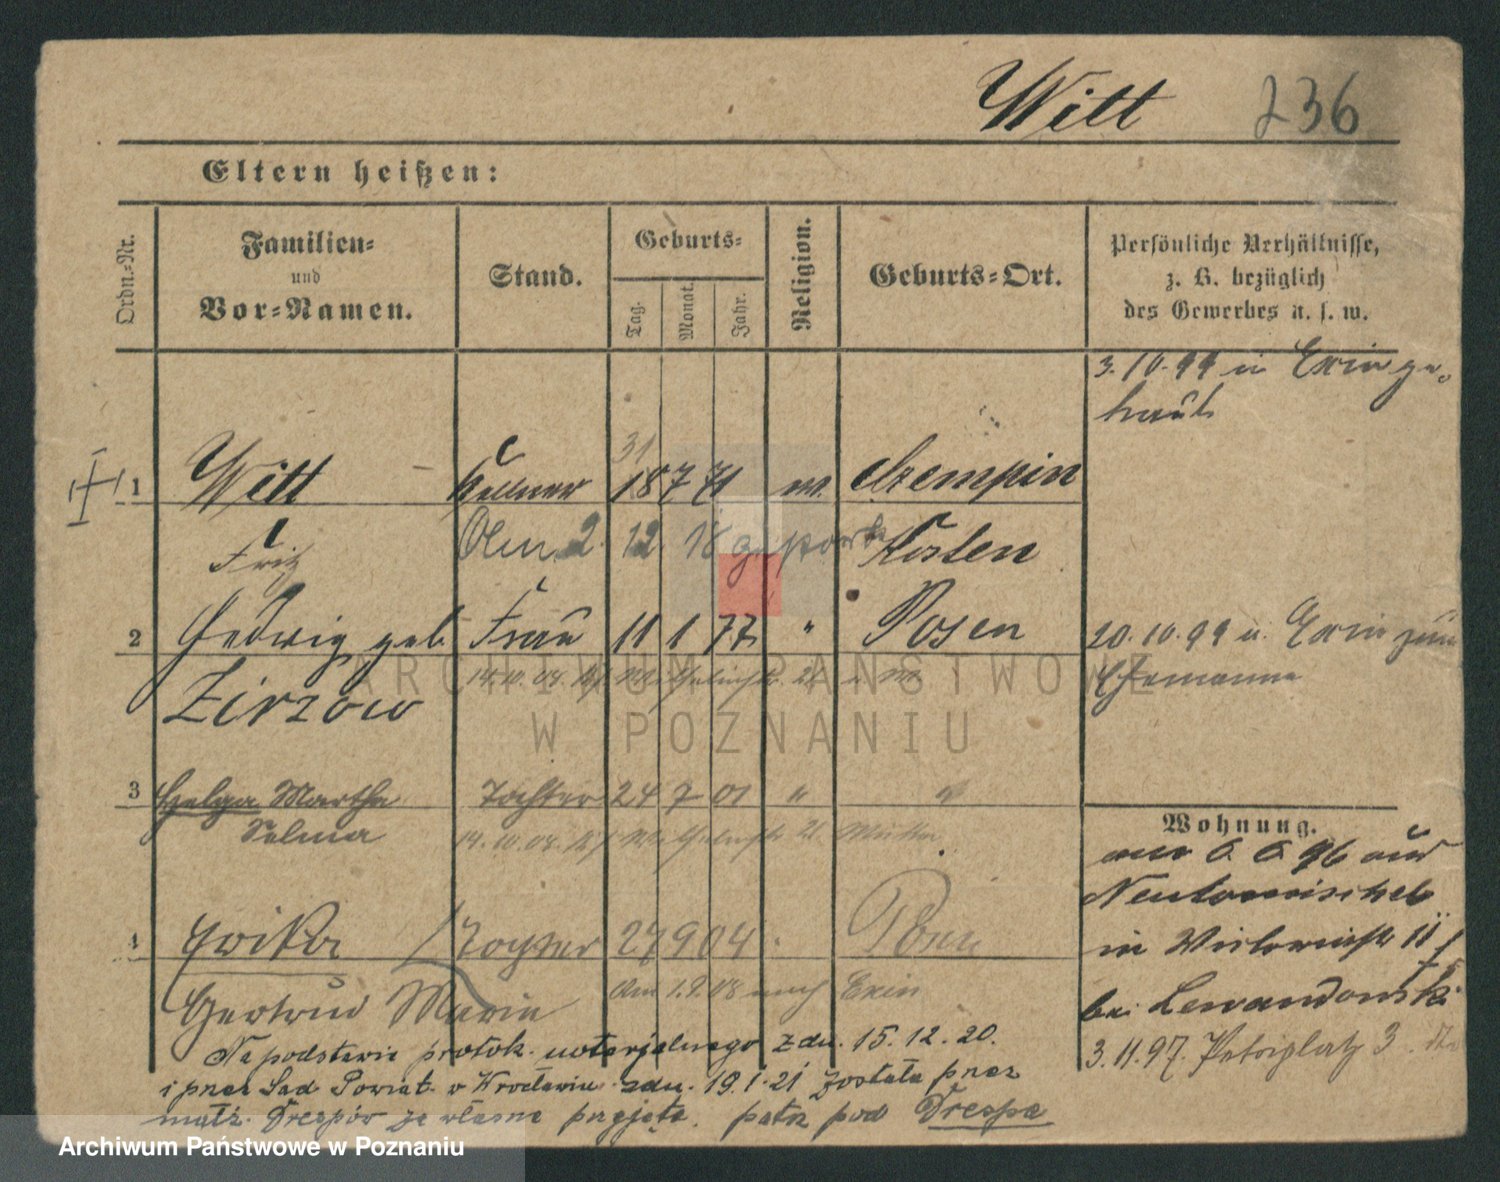 Witt 236
Eltern heißen:
Ordn.-Nr.
Familien-
und
Vor-Namen.
Stand.
Geburts-
Tag.
Monat.
Jahr.
Religion.
Geburts-Ort.
Persönliche Verhältnisse,
z. B. bezüglich
des Gewerbes u. s. w.
3.10.99 in Exin ge-
traut
31
1 Witt Kellner 18 7 71 ev. Czempin
Fritz 2. 12. 18 Kosten
2 Hedwig geb. Frau 11 1 77 " Posen 20.10.99 v. Exin zum
Ehemanne
Zirzow 14.10.08
3 Helga Martha Tochter 24 7 01 " "
Selma 14.10.08 21 Mutter
Wohnung.
6. 6. 96 aus
Neutomischel
in 11
bei Lewandowski
3.11.97. Petriplatz 3
4 Erika Tochter 27 9 04 Posen
Gertrud Marie Am 1.9.08 nach Exin
Na podstawie protok. notarjalnego z dn. 15.12.20.
i przez Sąd Powiat. w Wrocławiu z dn. 19.1.21 została przez
małż. Drespów za własne przyjęta. patrz pod Drespa
ARCHIWUM PAŃSTWOWE
W POZNANIU
Archiwum Państwowe w Poznaniu